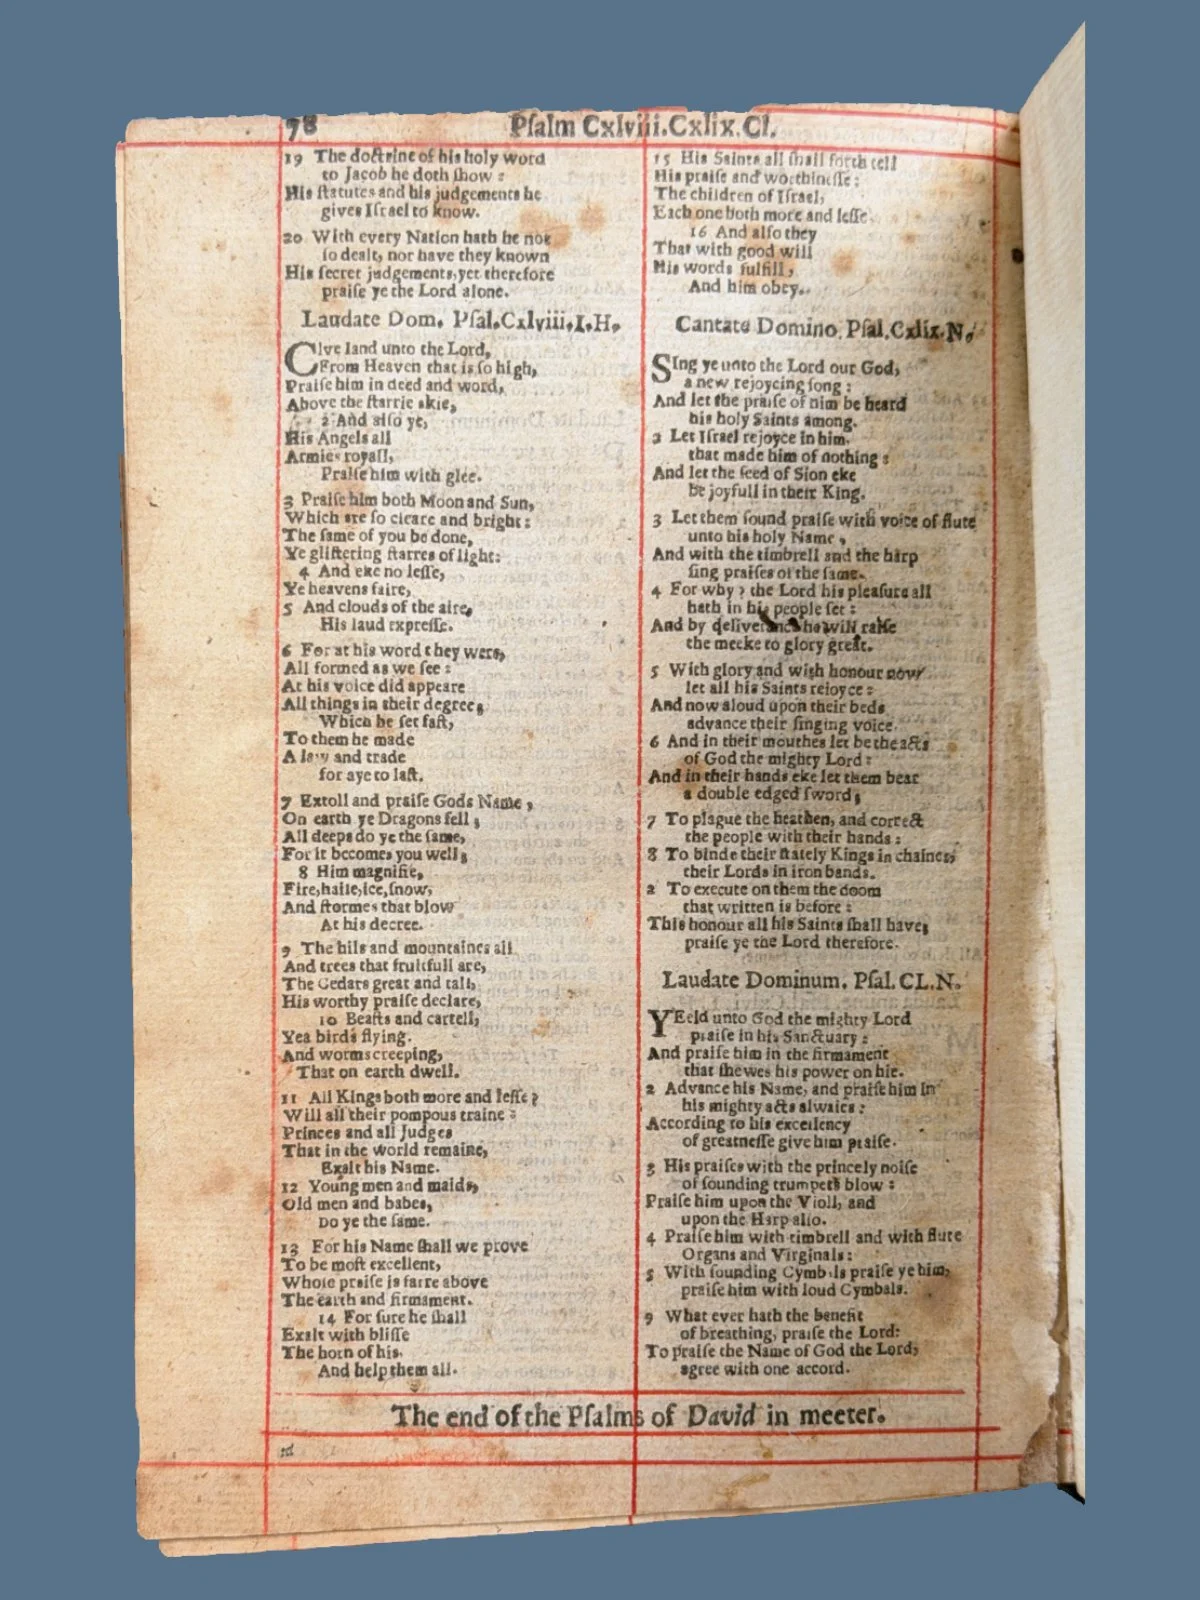 78
Psalm Cxlviii.Cxlix.Cl.
19 The doctrine of his holy word
to Jacob he doth show :
His statutes and his judgements he
gives Israel to know.
20 With every Nation hath he not
so dealt, nor have they known
His secret judgements, yet therefore
praise ye the Lord alone.
Laudate Dom. Psal.Cxlviii.I.H.
GIve laud unto the Lord,
From Heaven that is so high,
Praise him in deed and word,
Above the starrie skie,
2 And also ye,
His Angels all
Armies royall,
Praise him with glee.
3 Praise him both Moon and Sun,
Which are so cleare and bright :
The same of you be done,
Ye glistering starres of light:
4 And eke no lesse,
Ye heavens faire,
5 And clouds of the aire,
His laud expresse.
6 For at his word they were,
All formed as we see :
At his voice did appeare
All things in their degree,
Which he set fast,
To them he made
A law and trade
for aye to last.
7 Extoll and praise Gods Name,
On earth ye Dragons fell,
All deeps do ye the same,
For it becomes you well,
8 Him magnifie,
Fire,haile,ice,snow,
And stormes that blow
At his decree.
9 The hils and mountaines all
And trees that fruitfull are,
The Cedars great and tall,
His worthy praise declare,
10 Beasts and cattell,
Yea birds flying.
And worms creeping,
That on earth dwell.
11 All Kings both more and lesse,
Will all their pompous traine :
Princes and all Judges
That in the world remaine,
Exalt his Name.
12 Young men and maids,
Old men and babes,
Do ye the same.
13 For his Name shall we prove
To be most excellent,
Whose praise is farre above
The earth and firmament.
14 For sure he shall
Exalt with blisse
The horn of his.
And help them all.
15 His Saints all shall forth tell
His praise and worthinesse :
The children of Israel,
Each one both more and lesse
16 And also they
That with good will
His words fulfill,
And him obey.
Cantate Domino. Psal.Cxlix.N.
SIng ye unto the Lord our God,
a new rejoycing song :
And let the praise of him be heard
his holy Saints among.
2 Let Israel rejoyce in him.
that made him of nothing :
And let the seed of Sion eke
be joyfull in their King.
3 Let them sound praise with voice of flute
unto his holy Name,
And with the timbrell and the harp
sing praises of the same.
4 For why ? the Lord his pleasure all
hath in his people set :
And by deliverance he will raise
the meeke to glory great.
5 With glory and with honour now
let all his Saints rejoyce :
And now aloud upon their beds
advance their singing voice.
6 And in their mouthes let be the acts
of God the mighty Lord :
And in their hands eke let them bear
a double edged sword,
7 To plague the heathen, and correct
the people with their hands :
8 To binde their stately Kings in chaines,
their Lords in iron bands.
2 To execute on them the doom
that written is before :
This honour all his Saints shall have,
praise ye the Lord therefore.
Laudate Dominum. Psal. CL.N.
YEeld unto God the mighty Lord
praise in his Sanctuary :
And praise him in the firmament
that shewes his power on hie.
2 Advance his Name, and praise him in
his mighty acts alwaies :
According to his excellency
of greatnesse give him praise.
3 His praises with the princely noise
of sounding trumpets blow :
Praise him upon the Violl, and
upon the Harp also.
4 Praise him with timbrell and with flute
Organs and Virginals :
5 With sounding Cymbals praise ye him,
praise him with loud Cymbals.
9 What ever hath the benefit
of breathing, praise the Lord:
To praise the Name of God the Lord,
agree with one accord.
The end of the Psalms of David in meeter.